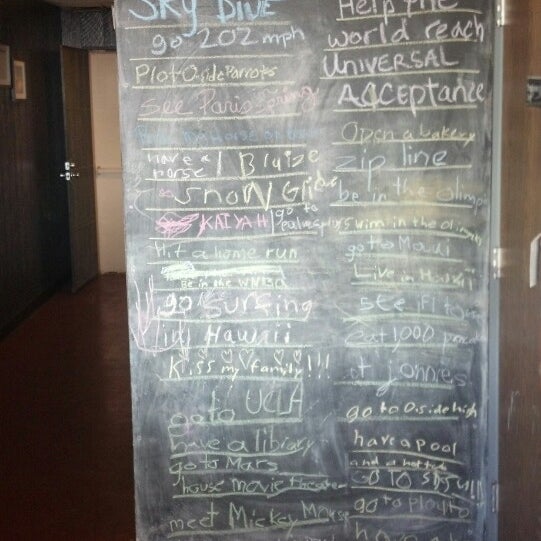 SKY DIVE
go 202 mph
Plot Oside Parrots
See Paris
have a horse
Blaize
Snow
KAIYAH
go to
Hit a home run
Be in the WNBA
go surfing
in Hawaii
Kiss my family!!!
go to UCLA
have a library
go to Mars
house movie theater
meet Mickey Mouse
Help the
world reach
UNIVERSAL
ACCEPTANCE
Open a bakery
zip line
be in the olimp
Swim in the
go to Maui
Live in Hawaii
Eat 1000
at jonnies
go to Oside high
have a pool
and a hot tub
GO TO SDSU!!
go to plouto